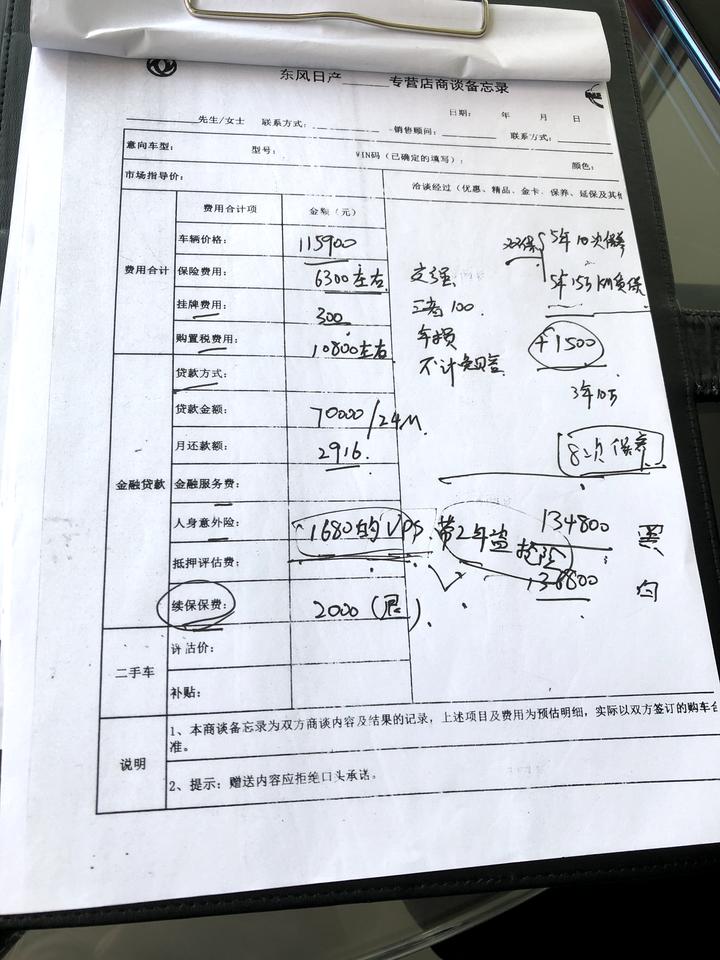 东风日产______专营店商谈备忘录
日期： 年 月 日
先生/女士 联系方式： 销售顾问： 联系方式：
意向车型： 型号： VIN码（已确定的填写）： 颜色：
市场指导价： 洽谈经过（优惠、精品、金卡、保养、延保及其他
费用合计
费用合计项 金额（元）
车辆价格： 115900
保险费用： 6300左右
挂牌费用： 300
购置税费用： 10800左右
交强
三者100
车损
不计免赔
双保
5年10次保养
5年15万KM质保
+1500
3年10万
8次保养
金融贷款
贷款方式：
贷款金额： 70000/24M.
月还款额： 2916.
金融服务费：
人身意外险： 1680的VPS. 带2年盗抢险
抵押评估费：
续保保费： 2000（店）.
134800 黑
136800 白
二手车
评估价：
补贴：
说明
1、本商谈备忘录为双方商谈内容及结果的记录，上述项目及费用为预估明细，实际以双方签订的购车合
准。
2、提示：赠送内容应拒绝口头承诺。